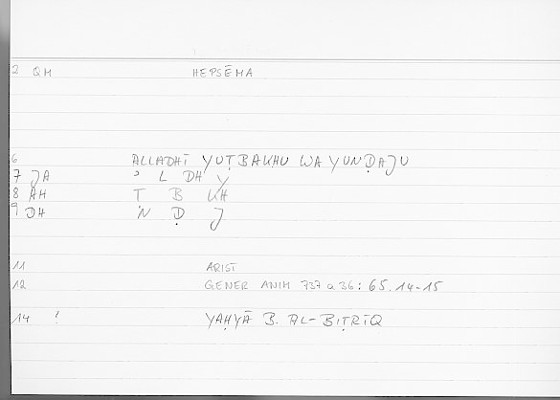 2 QM HEPSĒMA
6 ALLADHĪ YUṬBAKHU WA YUNḌAJU
7 JA ʾ L DH Y
8 AH T B KH
9 DH N Ḍ J
11 ARIST
12 GENER ANIM 737 a 36: 65.14-15
14 ! YAḤYĀ B. AL-BIṬRĪQ